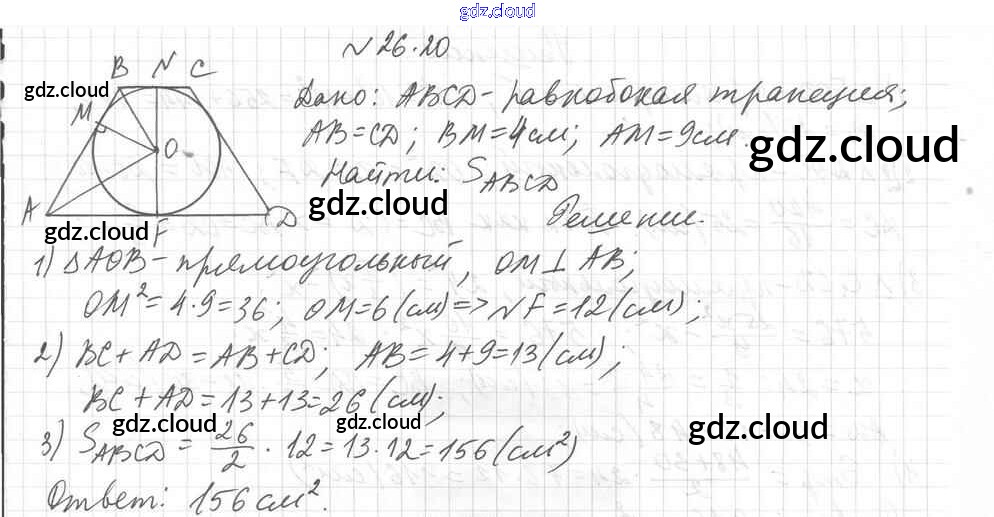 gdz.cloud
№ 26.20
B N C
gdz.cloud
M
O
A
D
F
gdz.cloud
Дано: ABCD - равнобокая трапеция;
AB = CD; BM = 4 см; AM = 9 см.
gdz.cloud
Найти: S_ABCD
gdz.cloud
Решение.
1) △AOB - прямоугольный, OM ⊥ AB;
OM² = 4 · 9 = 36; OM = 6 (см) => NF = 12 (см);
2) BC + AD = AB + CD; AB = 4 + 9 = 13 (см);
BC + AD = 13 + 13 = 26 (см);
gdz.cloud gdz.cloud gdz.cloud
3) S_ABCD = 26/2 · 12 = 13 · 12 = 156 (см²)
Ответ: 156 см².